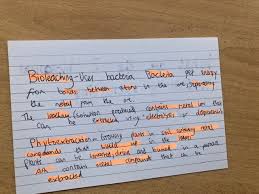 Bioleaching - Uses bacteria. Bacteria get energy
from bonds between atoms in the ore, separating
the metal from the ore.
The leachate (solution produced) contains metal ions that
can be extracted using electrolysis or displacement
Phytoextraction - Growing plants in soil containing metal
compounds that build up in the leaves
Plants can be burned, dried and burned in a furnace
Ash contains metal compounds that can be
extracted